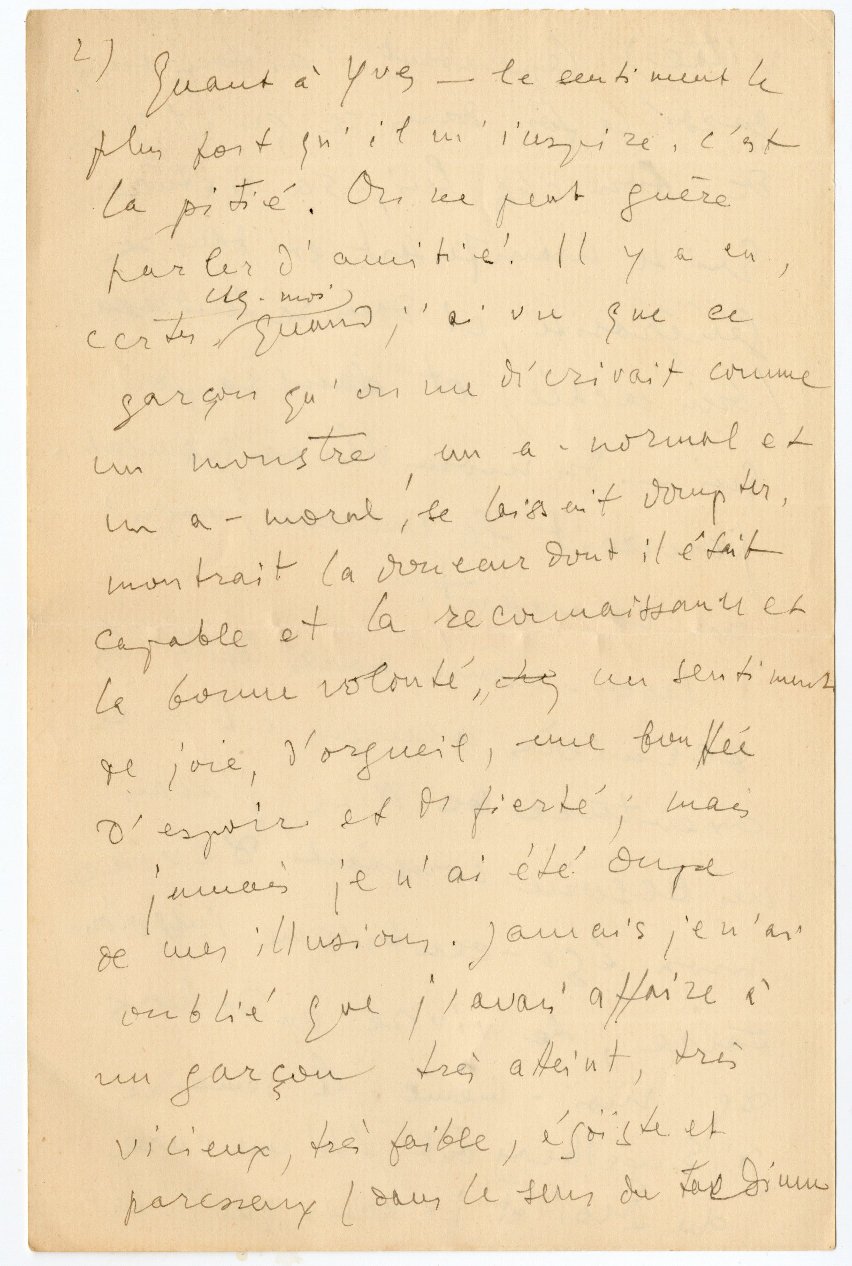 2)
Quant à Yves — le sentiment le
plus fort qu'il m'inspire, c'est
la pitié. On ne peut guère
parler d'amitié. Il y a eu,
chez-moi
certes quand j'ai vu que ce
garçon qu'on me décrivait comme
un monstre, un a-normal et
un a-moral, se laissait dompter,
montrait la douceur dont il était
capable et la reconnaissance et
la bonne volonté, chez un sentiment
de joie, d'orgueil, une bouffée
d'espoir et de fierté; mais
jamais je n'ai été dupe
de mes illusions. Jamais je n'ai
oublié que j'avais affaire à
un garçon très atteint, très
vicieux, très faible, égoïste et
paresseux (dans le sens du